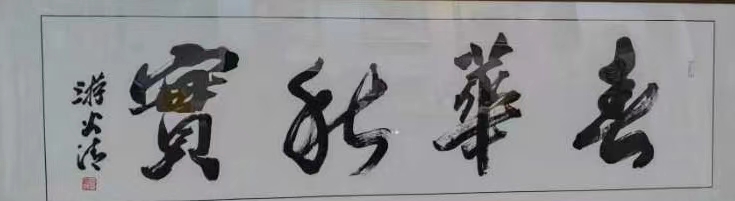 春華秋實
游火清